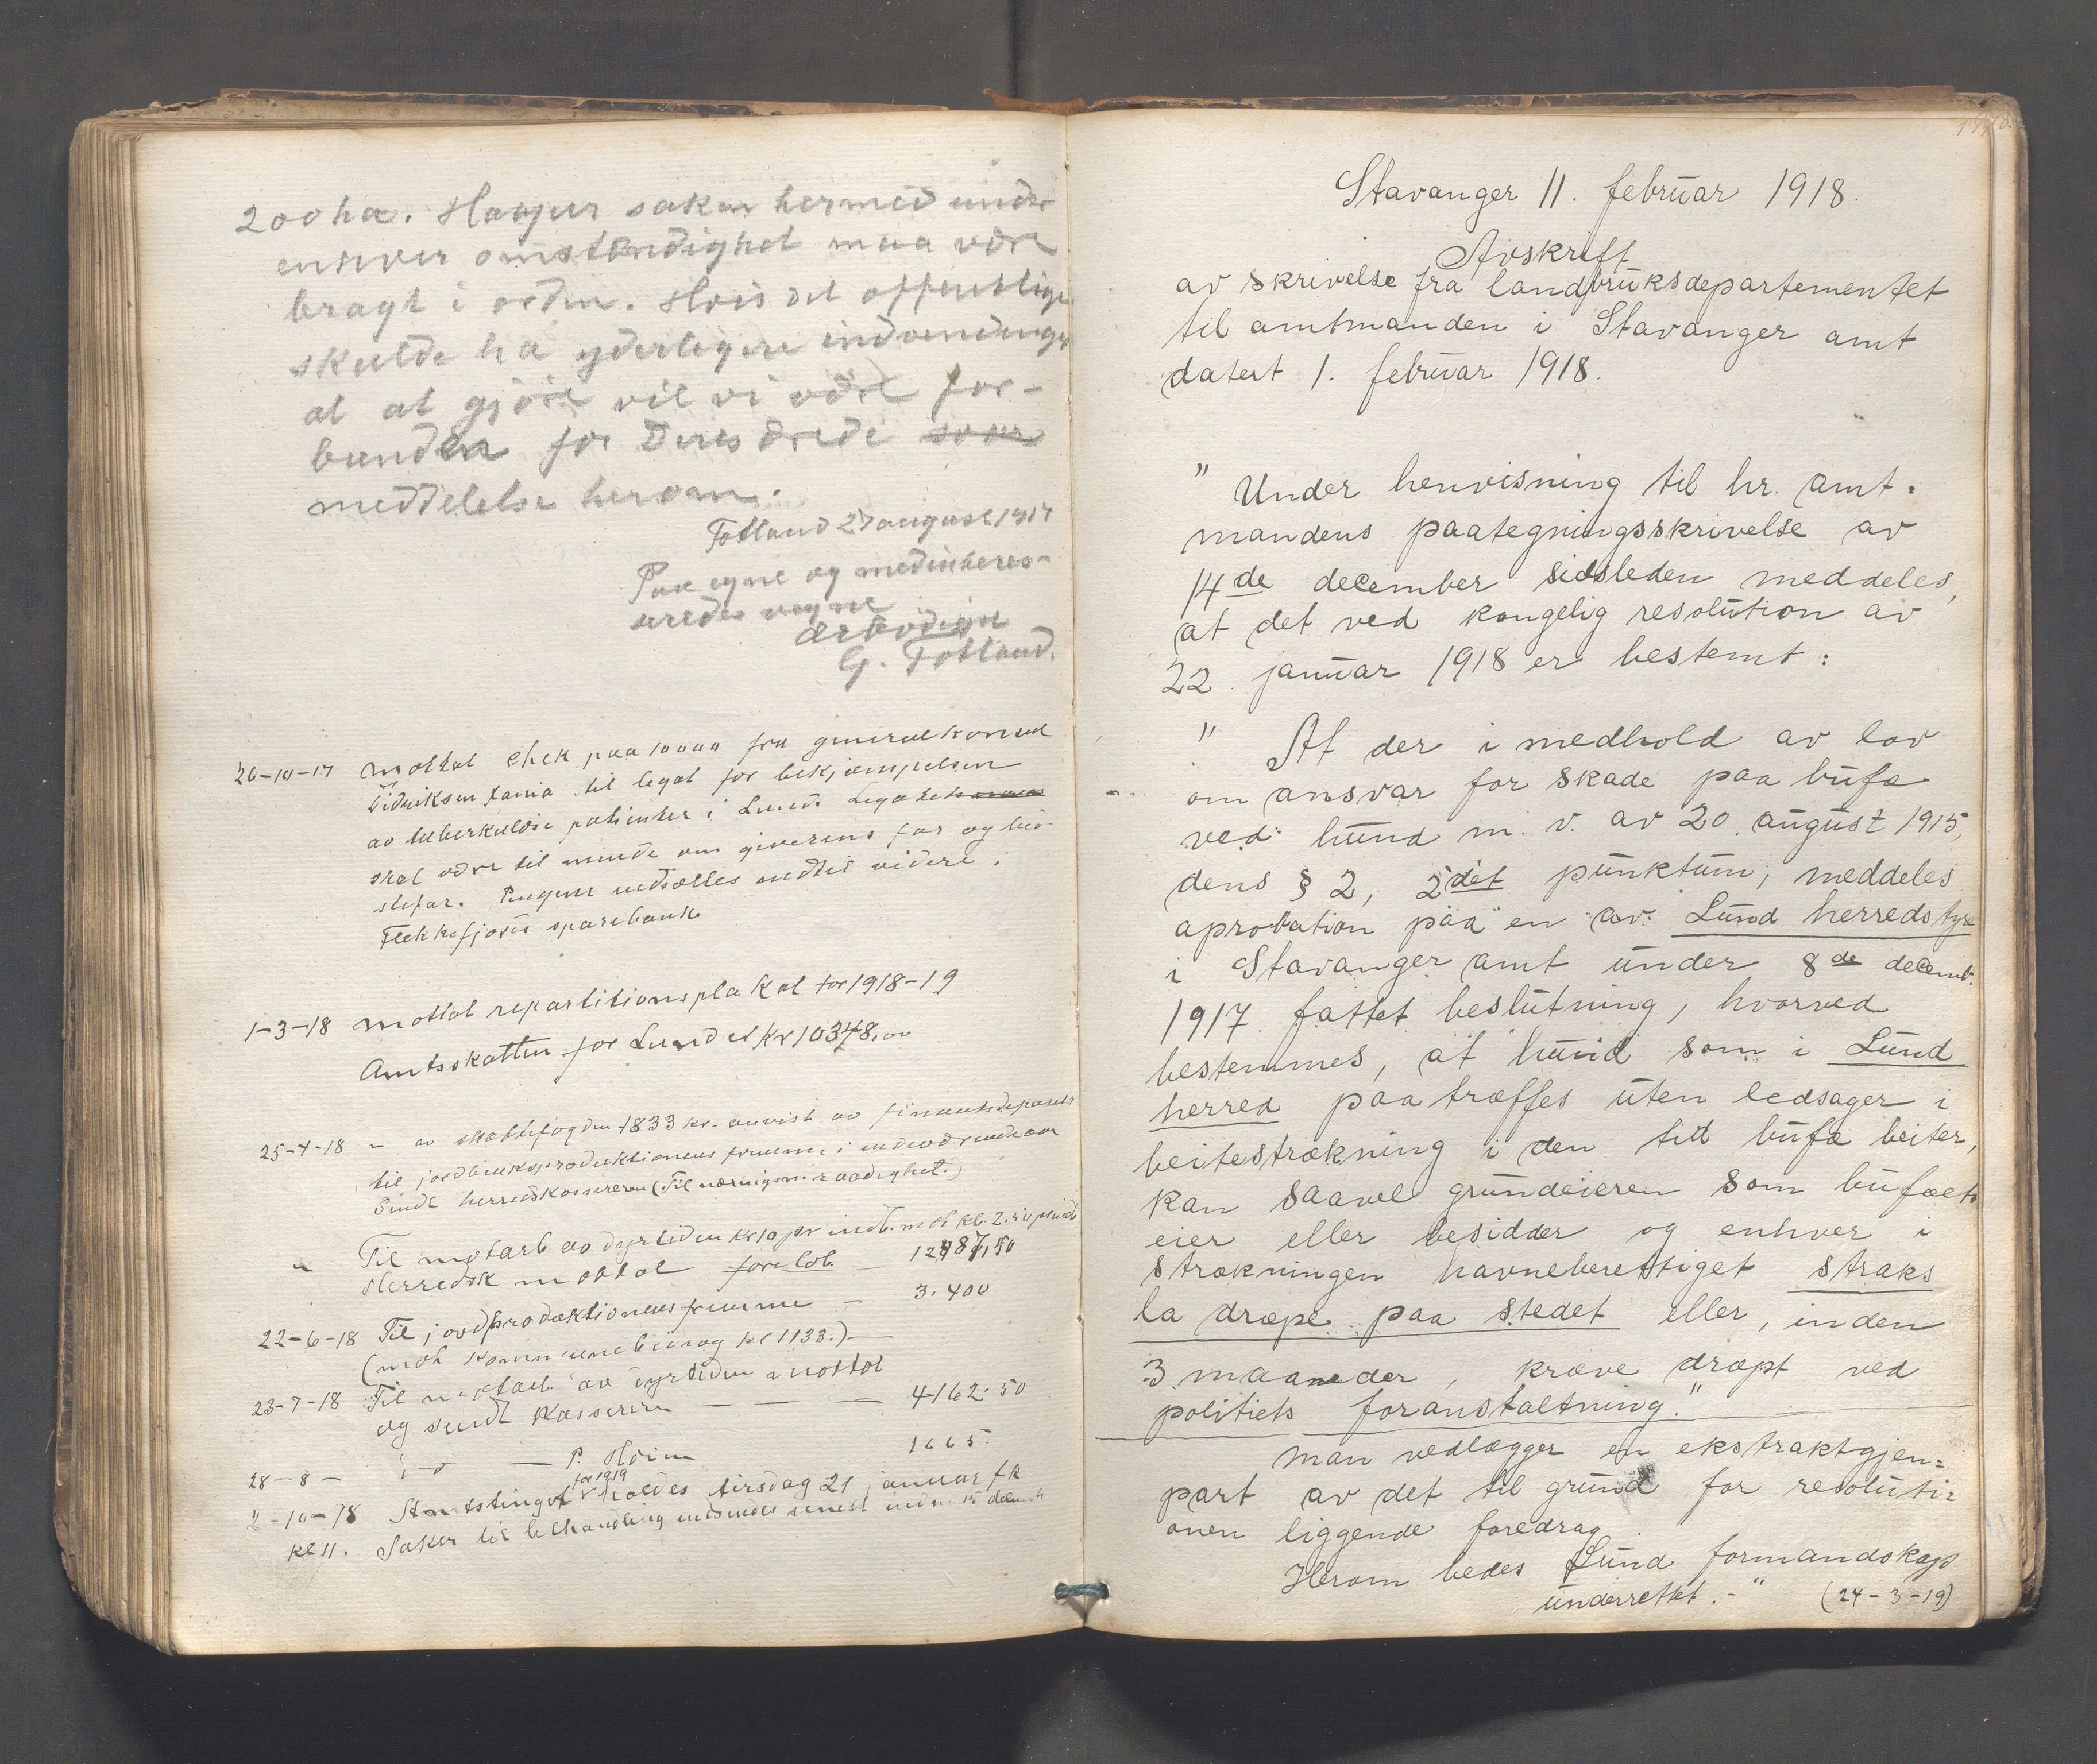 200 ha. Haaper saken hermed under
enhver omstendighet maa være
bragt i orden. Hvis det offentlige
skulde ha yderligere indvendinger
at at gjøre vil vi være for-
bunden for Deres ærede svar
meddelelse herom.
Totland 27 august 1917
Paa egne og medinteres-
seredes vegne
ærbødigst
G. Totland.
26-10-17 Mottat chek paa 10000 fra generalkonsul
Didriksen, til legat for bekjæmpelsen
av tuberkuløse patienter i Lund. Legatet
skal være til minde om giverens far og
stefar. Pengene indsættes indtil videre i
Flekkefjords sparebank
1-3-18 Mottat repartitionsplakat for 1918-19
Amtsskatten for Lund er kr 10348,00
25-4-18 " av skattefogden 1833 kr. anvist av finansdepartet
til jordbruksproduktionens fremme i indeværende aar
Sendt herredskassereren (Til næringens raadighet.)
" Til motarb av dyrtiden kr 10 pr indb. mot kr. 2.50 pr indb
Herredsk mottat foreløb. 12487,50
22-6-18 Til jordproduktionens fremme - 3.400
(mot kommunebidrag kr 1133.) -
23-7-18 Til motarb. av dyrtiden mottat
og sendt kassereren - - - 4162.50
28-8- - P. Heim 1665.
2-10-18 Amtstinget for 1919 holdes tirsdag 21 januar f k
kl 11. Saker til behandling indsendes senest inden 15 decemb
Stavanger 11. februar 1918.
Avskrift
av skrivelse fra landbruksdepartementet
til amtmanden i Stavanger amt
datert 1. februar 1918.
" Under henvisning til hr. amt-
mandens paategningsskrivelse av
14de december sidsleden meddeles,
at det ved kongelig resolution av
22 januar 1918 er bestemt:
" At der i medhold av lov
om ansvar for skade paa bufæ
ved hund m. v. av 20. august 1915,
dens § 2, 2det punktum, meddeles
aprobation paa en av Lund herredstyre
i Stavanger amt under 8de decemb.
1917 fattet beslutning, hvorved
bestemmes, at hund som i Lund
herred paatræffes uten ledsager i
beitestrækning i den tid bufæ beiter,
kan saavel grundeieren som bufæets
eier eller besidder og enhver i
strækningen havneberettiget straks
la dræpe paa stedet eller, inden
3 maaneder, kræve dræpt ved
politiets foranstaltning."
Man vedlægger en ekstraktgjen=
part av det til grund for resoluti=
onen liggende foredrag.
Herom bedes Lund formandskap
underrettet.-" (24-3-19)